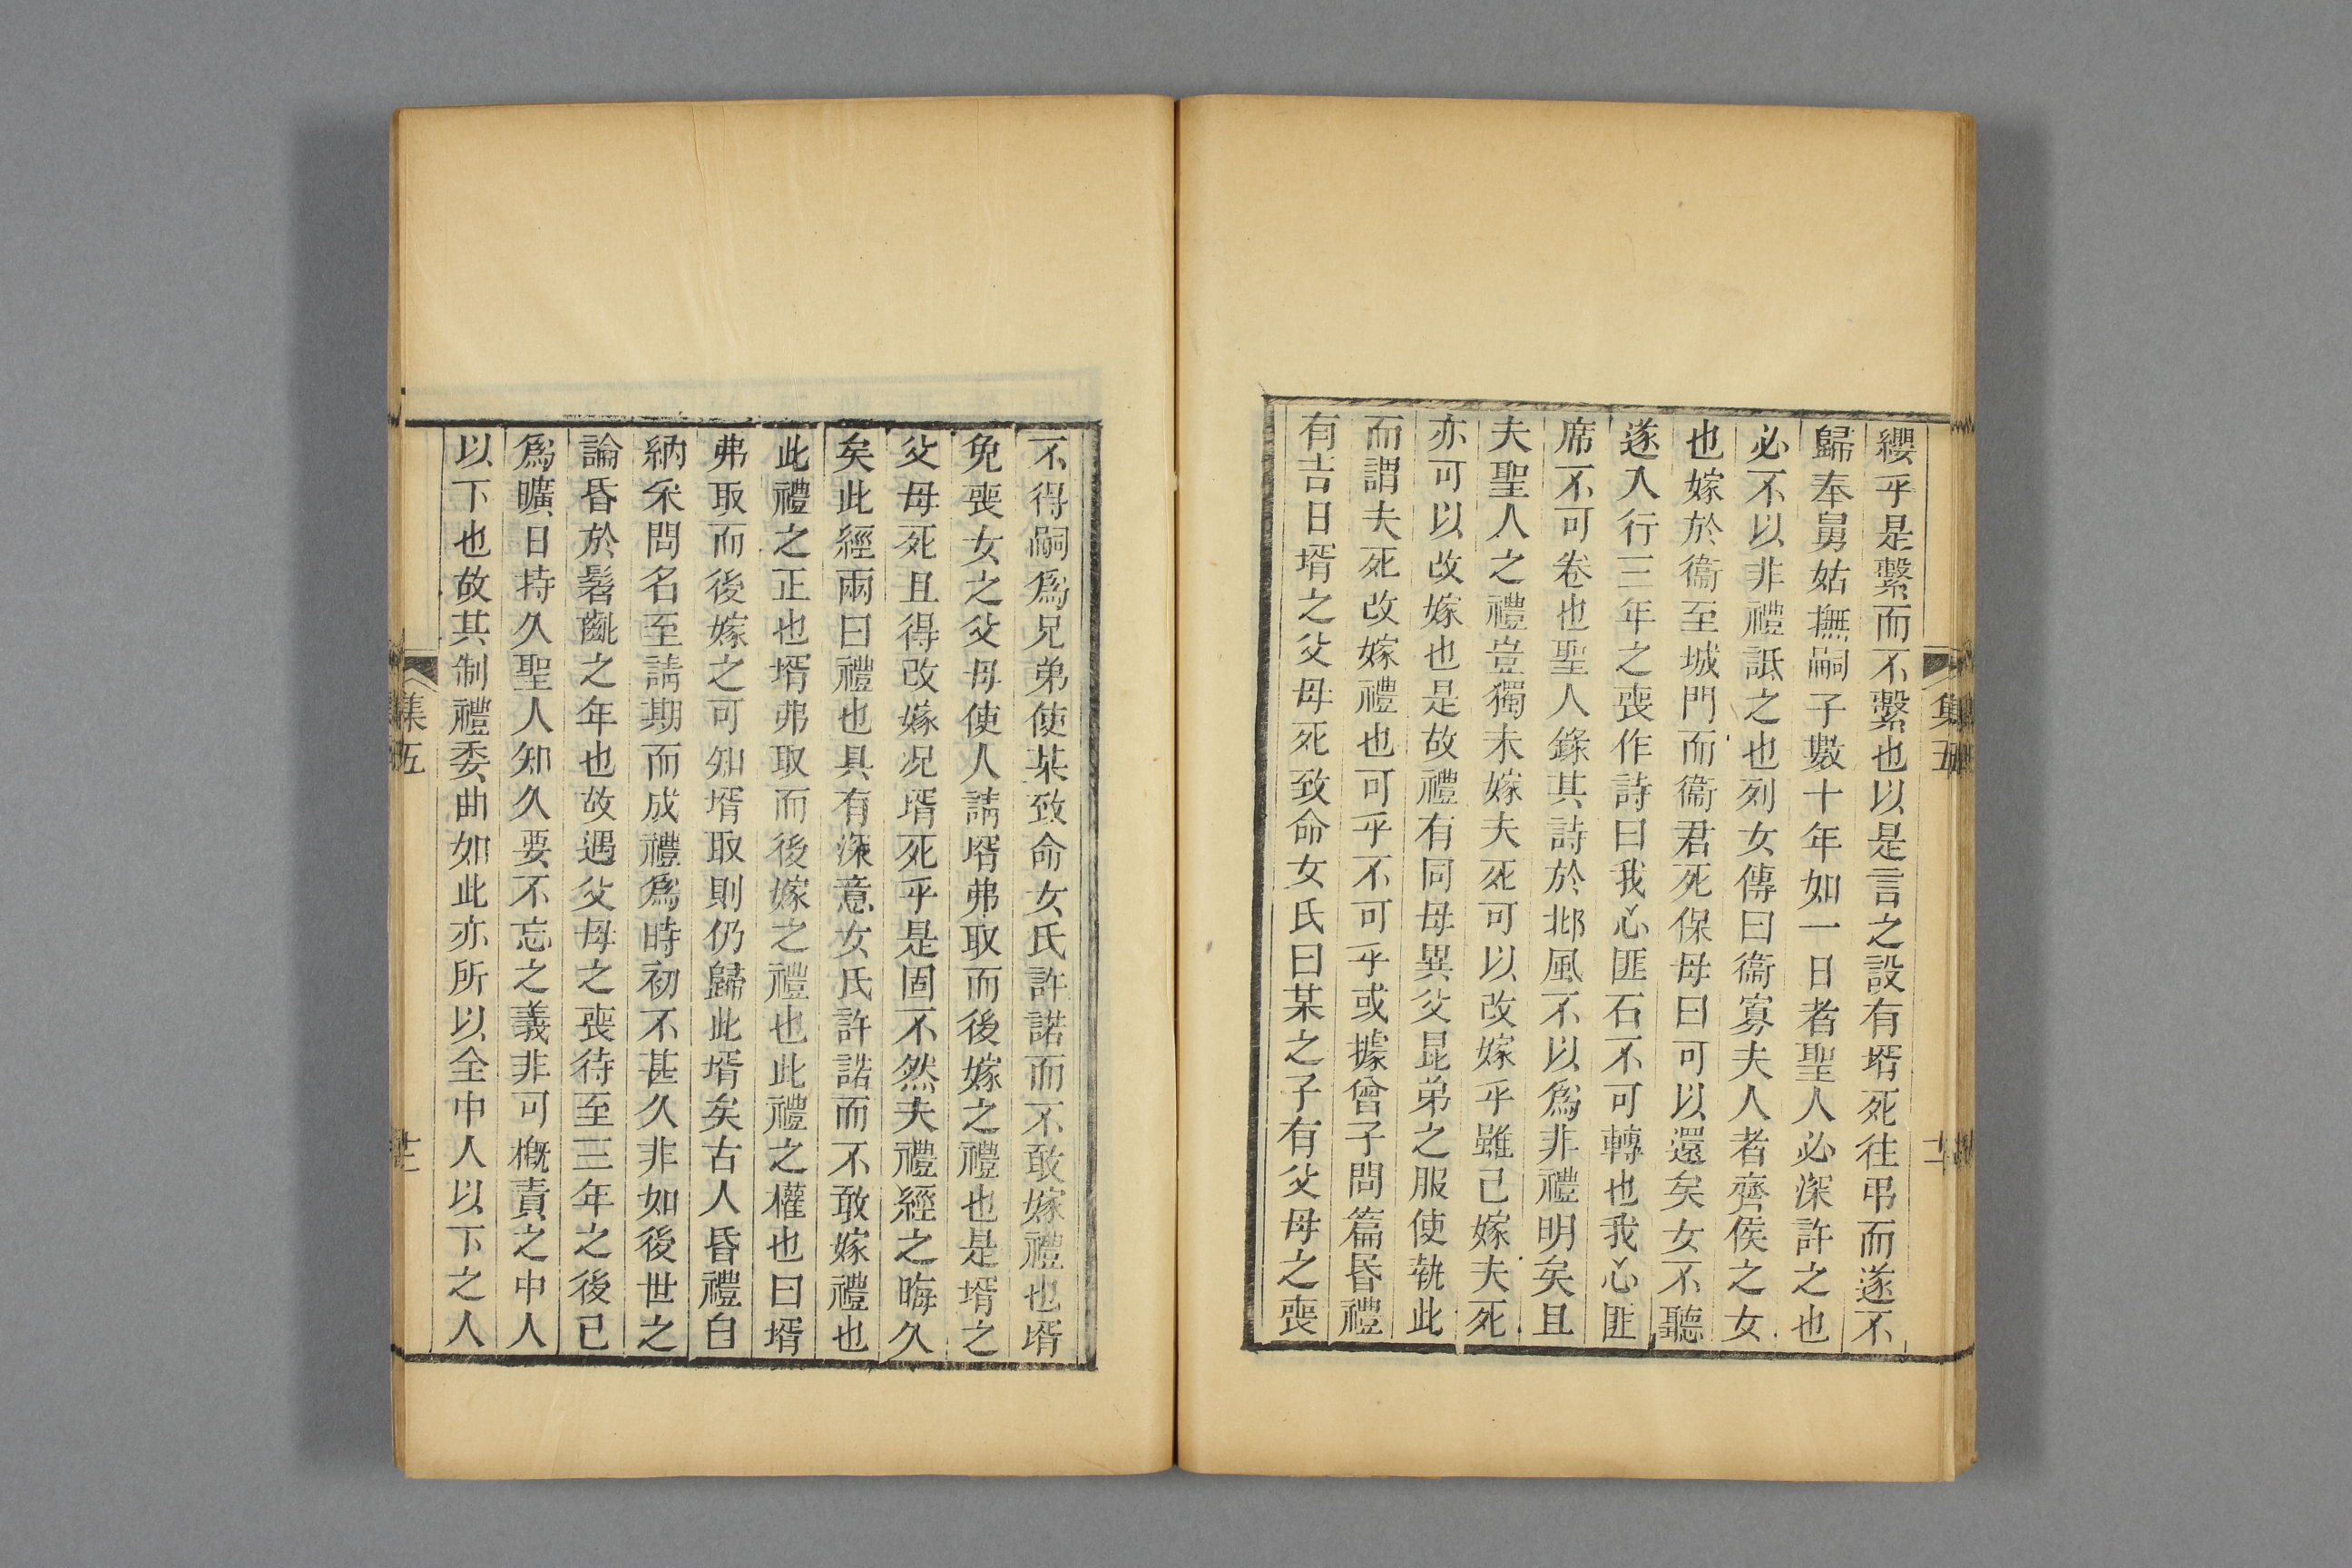 纓乎是繫而不繫也以是言之設有壻死往弔而遂不
歸奉舅姑撫嗣子數十年如一日者聖人必深許之也
必不以非禮詆之也列女傳曰衞寡夫人者齊侯之女
也嫁於衞至城門而衞君死保母曰可以還矣女不聽
遂入行三年之喪作詩曰我心匪石不可轉也我心匪
席不可卷也聖人錄其詩於邶風不以爲非禮明矣且
夫聖人之禮豈獨未嫁夫死可以改嫁乎雖己嫁夫死
亦可以改嫁也是故禮有同母異父昆弟之服使執此
而謂夫死改嫁禮也可乎不可乎或據曾子問篇昏禮
有吉日壻之父母死致命女氏曰某之子有父母之喪
集五
不得嗣爲兄弟使某致命女氏許諾而不敢嫁禮也壻
免喪女之父母使人請壻弗取而後嫁之禮也是壻之
父母死且得改嫁况壻死乎是固不然夫禮經之晦久
矣此經兩曰禮也具有深意女氏許諾而不敢嫁禮也
此禮之正也壻弗取而後嫁之禮也此禮之權也曰壻
弗取而後嫁之可知壻取則仍歸此壻矣古人昏禮自
納采問名至請期而成禮爲時初不甚久非如後世之
論昏於髫齔之年也故遇父母之喪待至三年之後已
爲曠日持久聖人知久要不忘之義非可槪責之中人
以下也故其制禮委曲如此亦所以全中人以下之人
集五